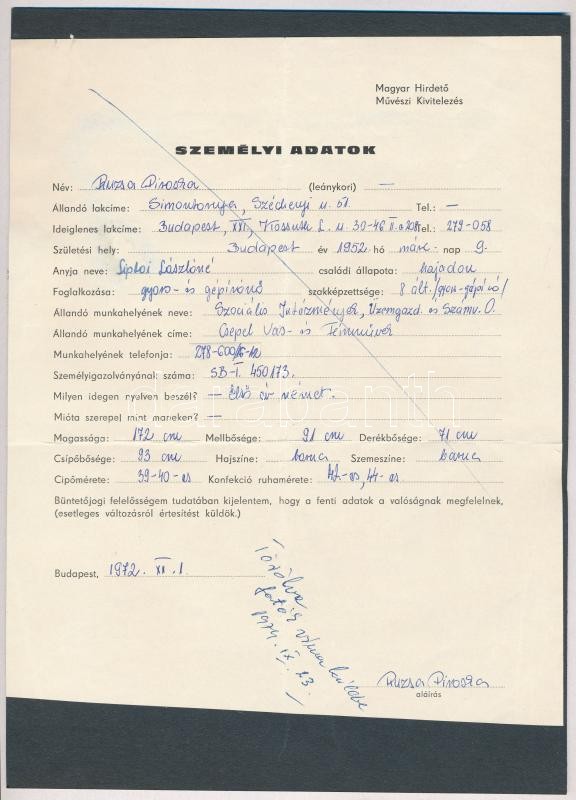 Magyar Hirdető
Művészi Kivitelezés
SZEMÉLYI ADATOK
Név: Ruzsa Piroska (leánykori) —
Állandó lakcíme: Simontornya, Széchenyi u. 61. Tel.: —
Ideiglenes lakcíme: Budapest, XXI, Kossuth L. u. 30-46 II. Tel.: 279-058
Születési hely: Budapest év 1952 hó márc. nap 9.
Anyja neve: Siptai Lászlóné családi állapota: hajadon
Foglalkozása: gyors- és gépírónő szakképzettsége: 8 ált. /gyors-gépíró/
Állandó munkahelyének neve: Szociális Intézmények, Üzemgazd. és Számv. O.
Állandó munkahelyének címe: Csepel Vas- és Fémművek
Munkahelyének telefonja: 278-600/
Személyigazolványának száma: SB-I. 450173.
Milyen idegen nyelven beszél? — Első év német.
Mióta szerepel mint maneken? —
Magassága: 172 cm Mellbősége: 91 cm Derékbősége: 71 cm
Csípőbősége: 93 cm Hajszíne: barna Szemeszíne: barna
Cipőmérete: 39-40-es Konfekció ruhamérete: 42-es, 44-es
Büntetőjogi felelősségem tudatában kijelentem, hogy a fenti adatok a valóságnak megfelelnek,
(esetleges változásról értesítést küldök.)
Budapest, 1972. XI. 1.
Törölve
fotói visszaküldve
1974. IX. 23.
Ruzsa Piroska
aláírás
darabanth